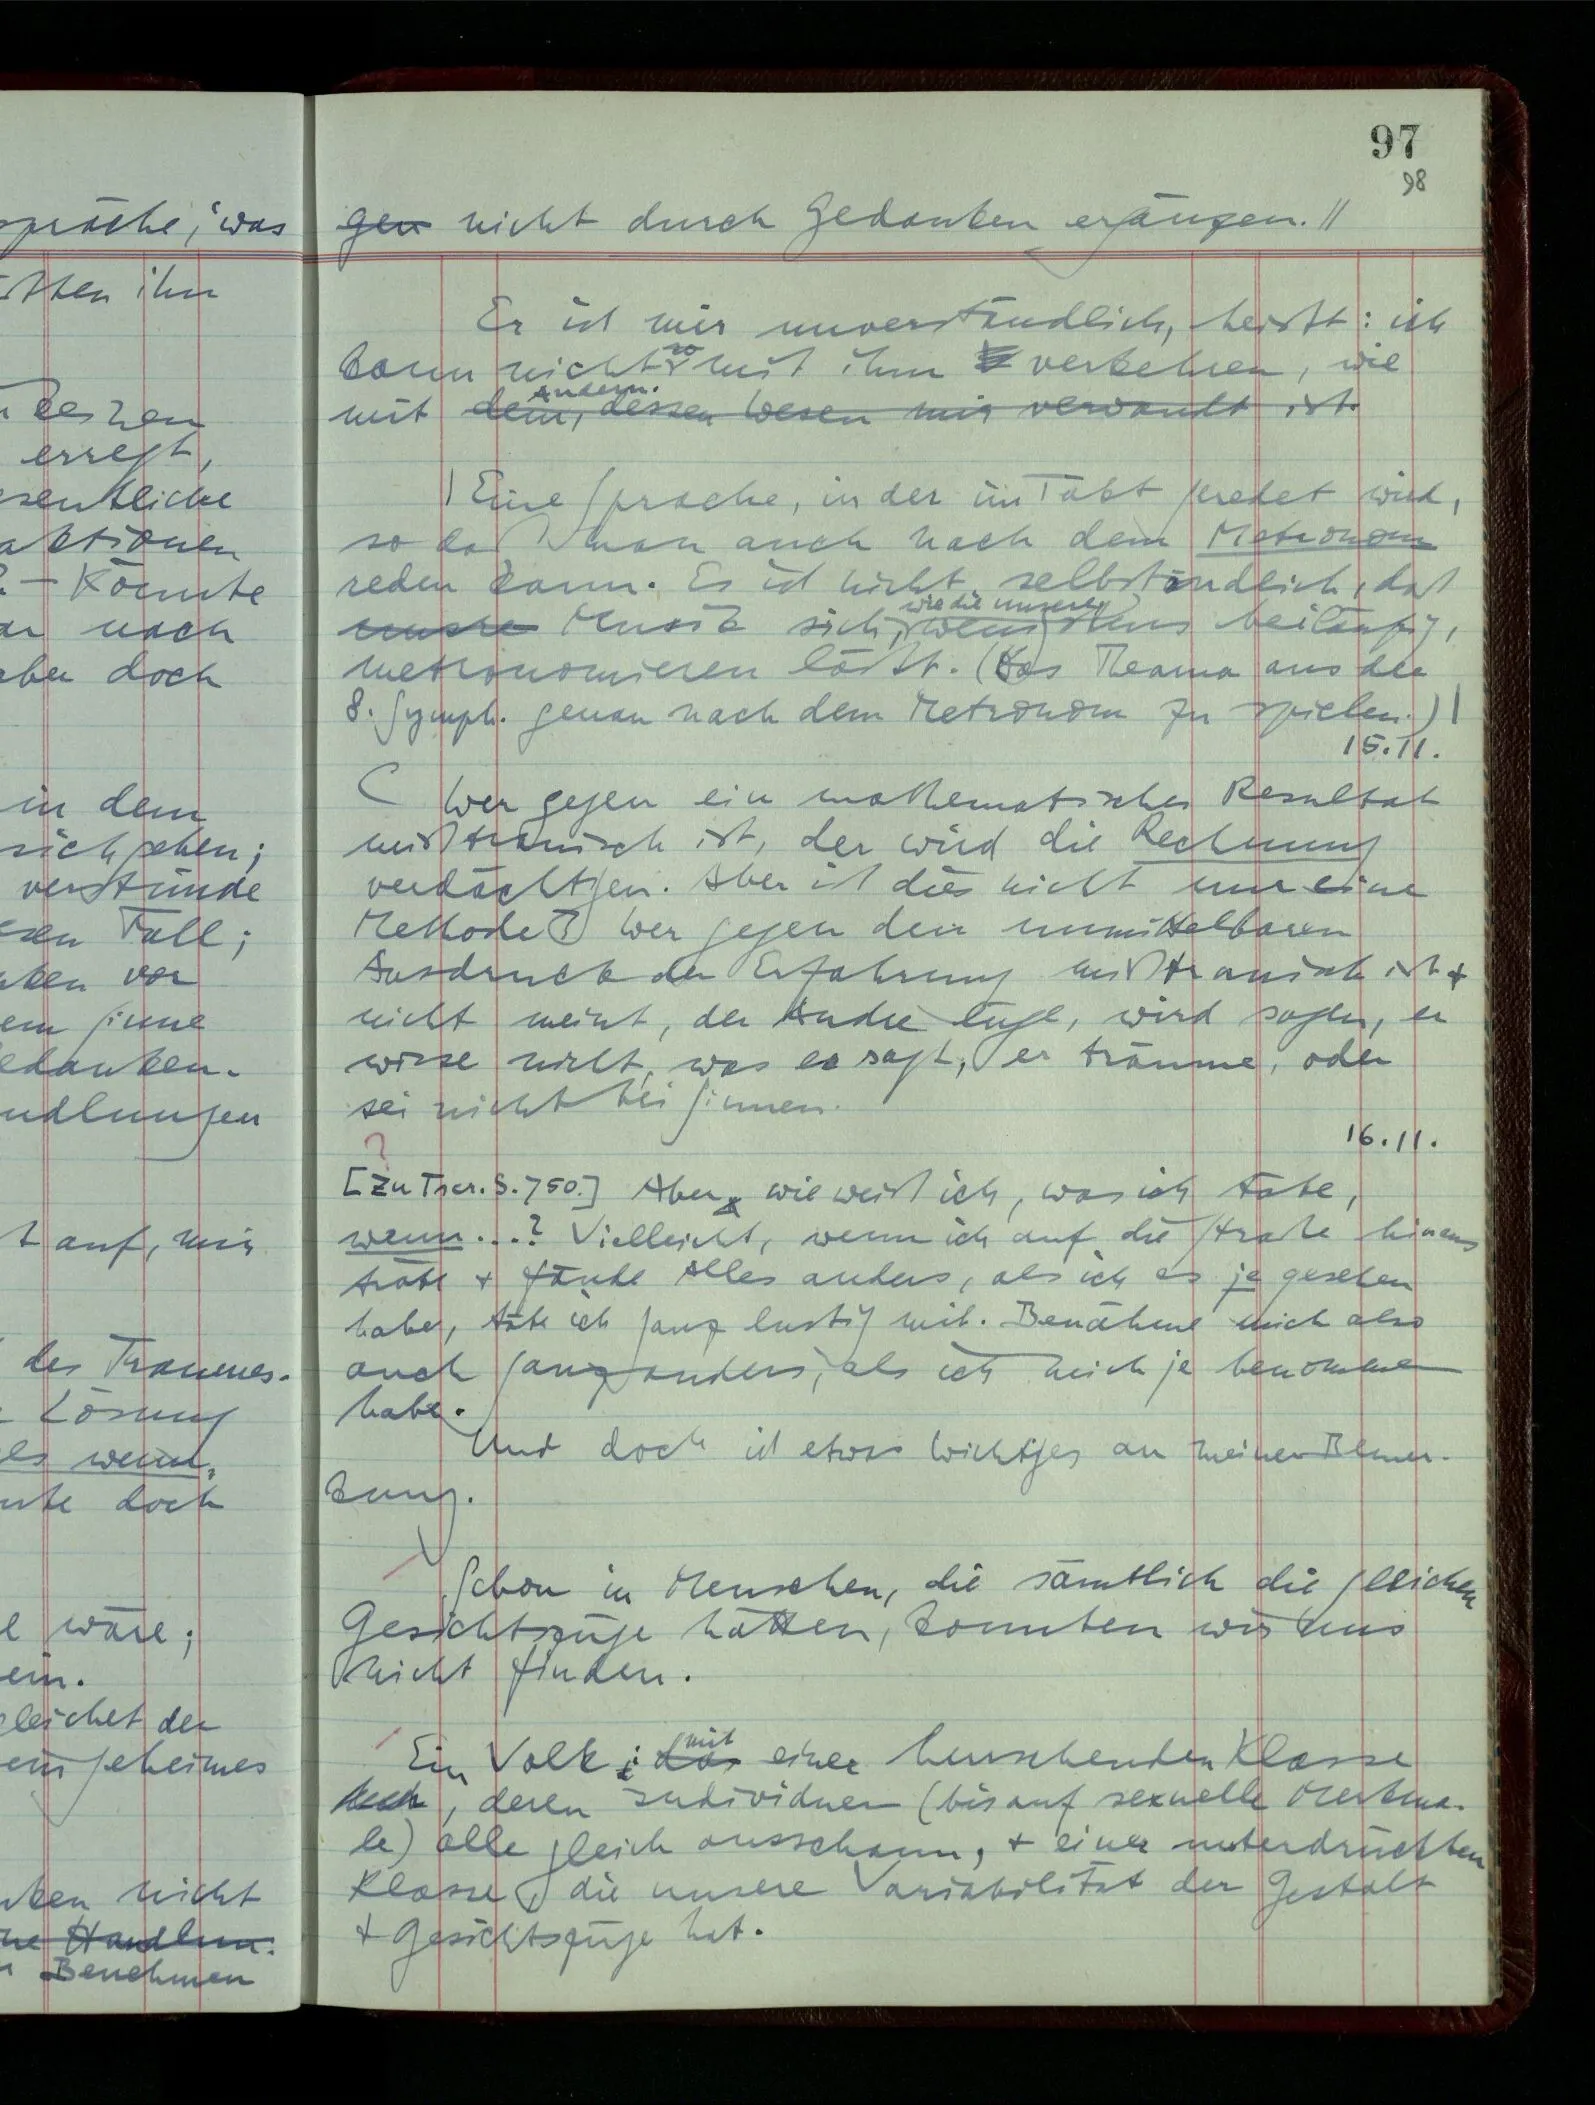 97
98
gen nicht durch Gedanken ergänzen. ||
Er ist mir unverständlich, heißt: ich
kann nicht so mit ihm verkehren, wie
mit dem, dessen Wesen mir verwandt ist.
Andern.
| Eine Sprache, in der im Takt geredet wird,
so daß man auch nach dem Metronom
reden kann. Es ist nicht selbstverständlich, daß
unsre Musik sich, wie die unsere, wenigstens beiläufig,
metronomieren läßt. (Das Thema aus der
8. Symph. genau nach dem Metronom zu spielen.) |
15.11.
Wer gegen ein mathematisches Resultat
mißtrauisch ist, der wird die Rechnung
verdächtigen. Aber ist dies nicht nur eine
Methode? Wer gegen den unmittelbaren
Ausdruck der Erfahrung mißtrauisch ist +
nicht meint, der Andre lüge, wird sagen, er
wisse nicht, was er sagt, er träume, oder
sei nicht bei Sinnen.
16.11.
?
[Zu Tscr. S. 750.] Aber wie weiß ich, was ich täte,
wenn...? Vielleicht, wenn ich auf die Straße hinaus
träte + fände Alles anders, als ich es je gesehen
habe, täte ich ganz lustig mit. Benähme mich also
auch ganz anders, als ich mich je benommen
habe.
Und doch ist etwas Wichtiges an meiner Bemer-
kung.
Schon in Menschen, die sämtlich die gleichen
Gesichtszüge hätten, könnten wir uns
nicht finden.
Ein Volk; das mit einer herrschenden Klasse
, deren Individuen (bis auf sexuelle Merkma-
le) alle gleich ausschaun, + einer unterdrückten
Klasse, die unsere Variabilität der Gestalt
+ Gesichtszüge hat.
spräche, was
hätten ihn
erregt,
esentliche
aktionen
? – Könnte
nach
aber doch
in dem
sich gehen;
verstünde
esen Fall;
nken vor
em Sinne
edanken.
ndlungen
t auf, mir
des Traumes.
Lösung
es wenn,
nte doch
e wäre;
ein.
gleichet der
ein geheimes
nken nicht
ne Handlun-
Benehmen